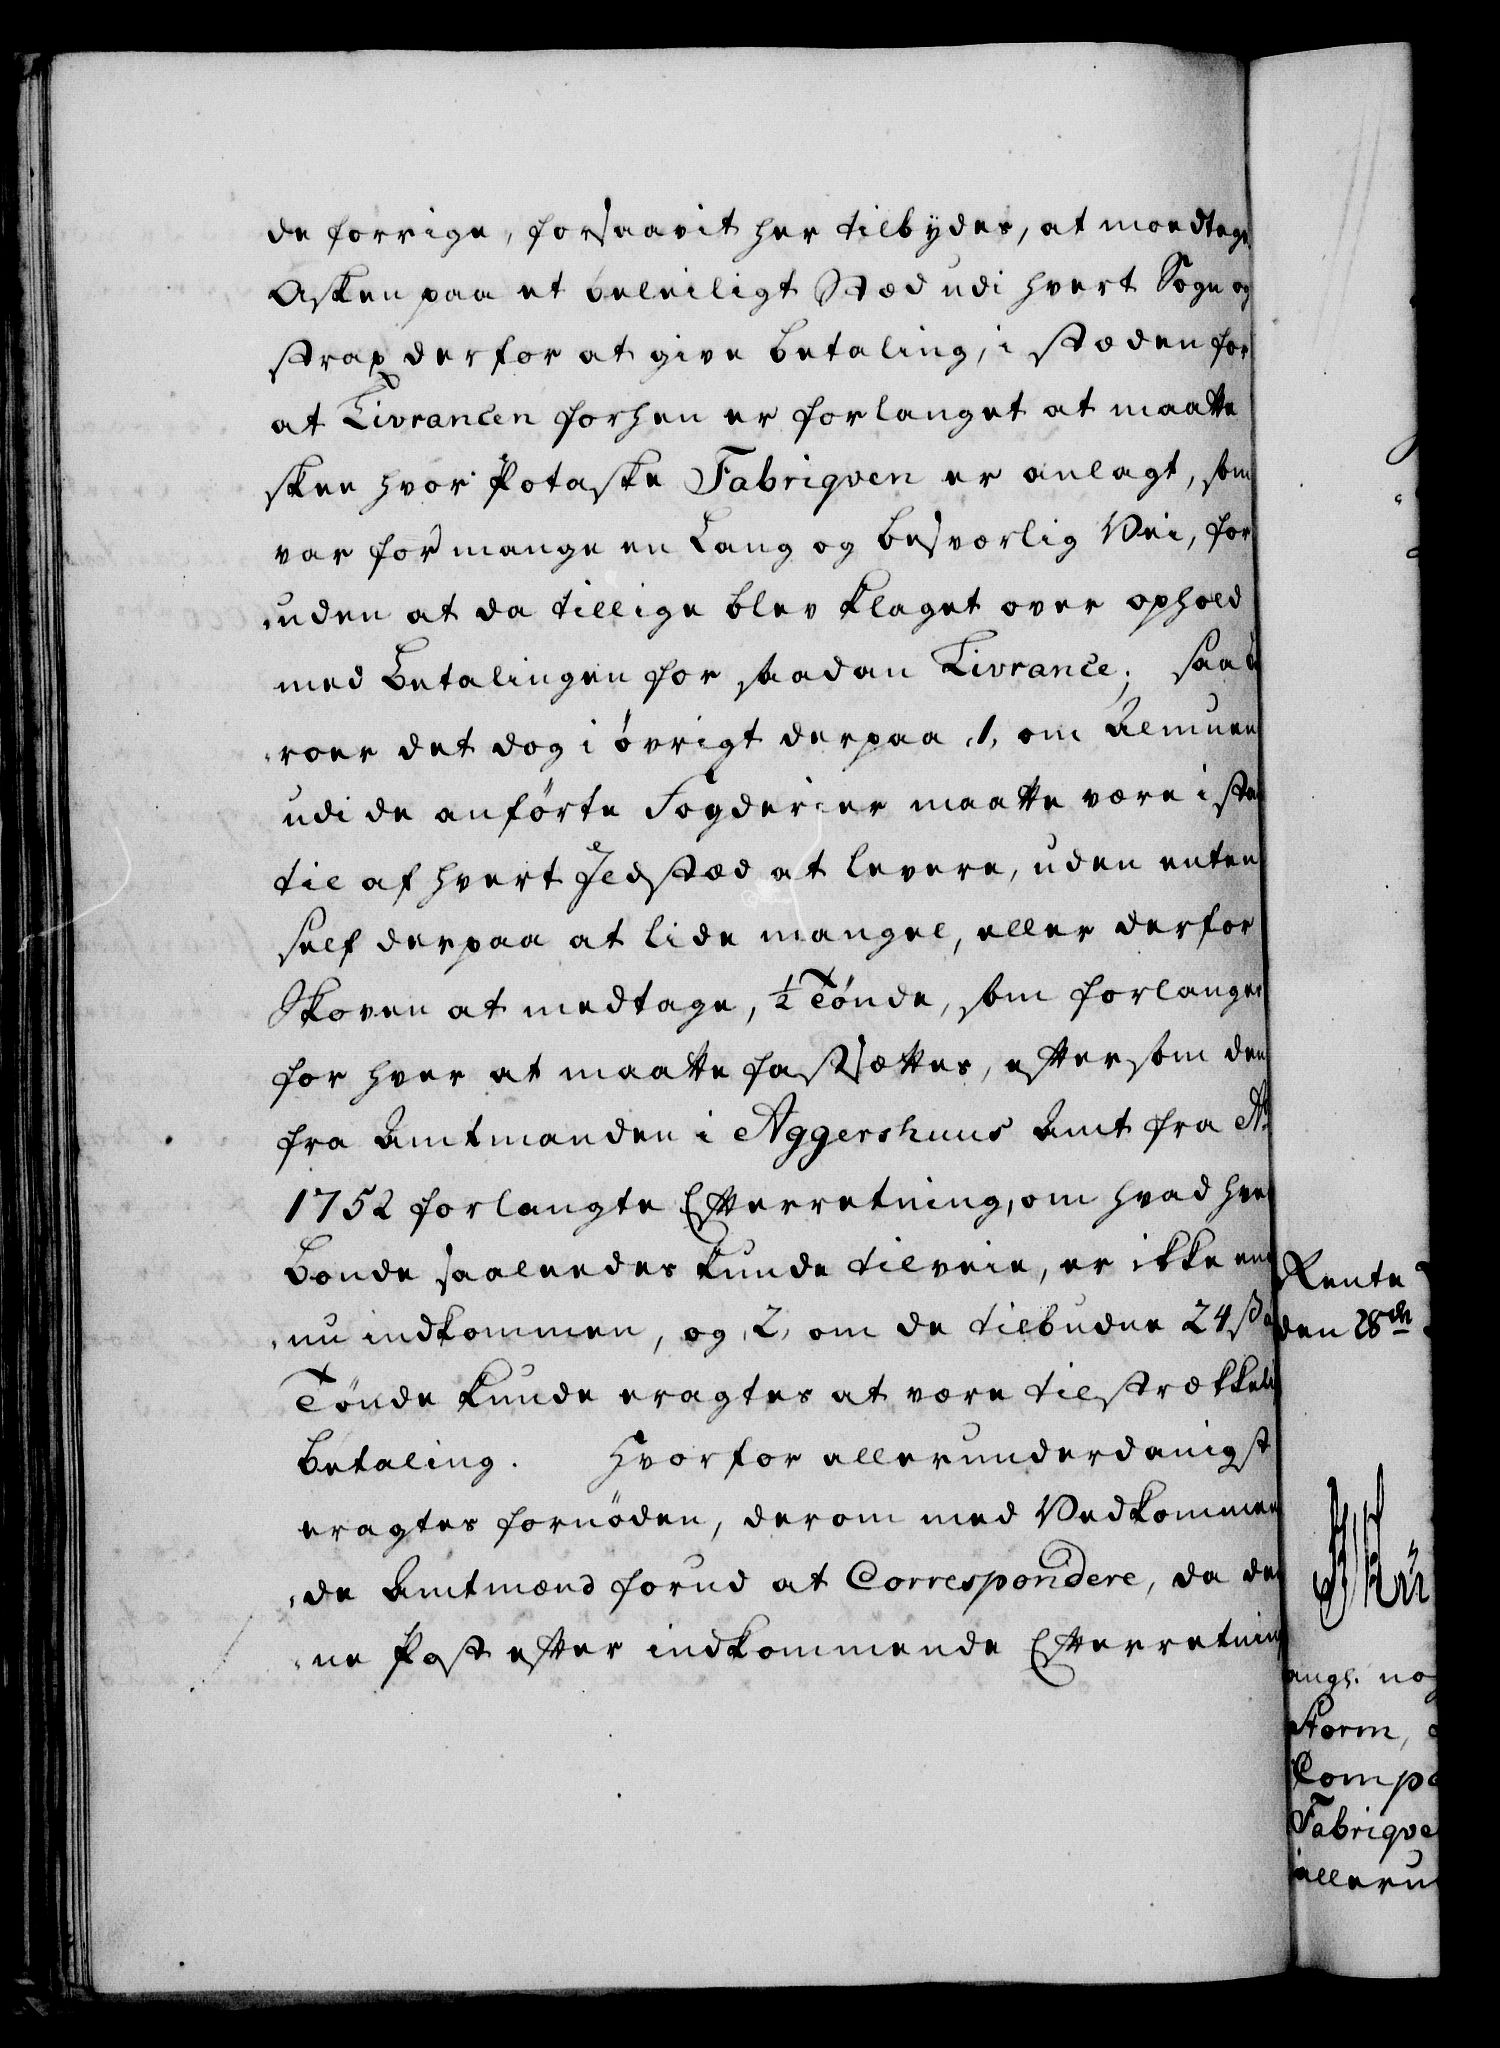 de forrige, forsaavit her tilbydes, at modtage
Asken paa et beleiligt Stæd udi hvert Sogn og
strax derfor at give betaling, i stæden for
at Livrancen forhen er forlanget at maatte
skee hvor Potaske Fabriqven er anlagt, som
var for mange en Lang og besværlig Vei, for
uden at da tillige blev klaget over ophold
med Betalingen for saadan Livrance; saa be
roer det dog i øvrigt derpaa 1, om Almuen
udi de anførte Fogderier maatte være i sta
til af hvert Ildstæd at levere, uden enten
self derpaa at lide mangel, eller derfor
Skoven at medtage, ½ Tønde, som forlanges
for hver at maatte fastsættes, eftersom den
fra Amtmanden i Aggershuus Amt fra Ao
1752 forlangte Efterretning, om hvad hver
Bonde saaleedes kunde tilveie, er ikke end
nu indkommen, og, 2, om de tilbudne 24 ß
Tønde kunde eragtes at være tilstrækkeli
betaling. Hvorfor allerunderdanigst
eragtes fornøden, derom med Vedkommen
de Amtmænd forud at Correspondere, da den
ne Post efter indkommende Efterretning
Rente
den 28de
angl. no
Storm,
Comp
Fabriqve
alleru